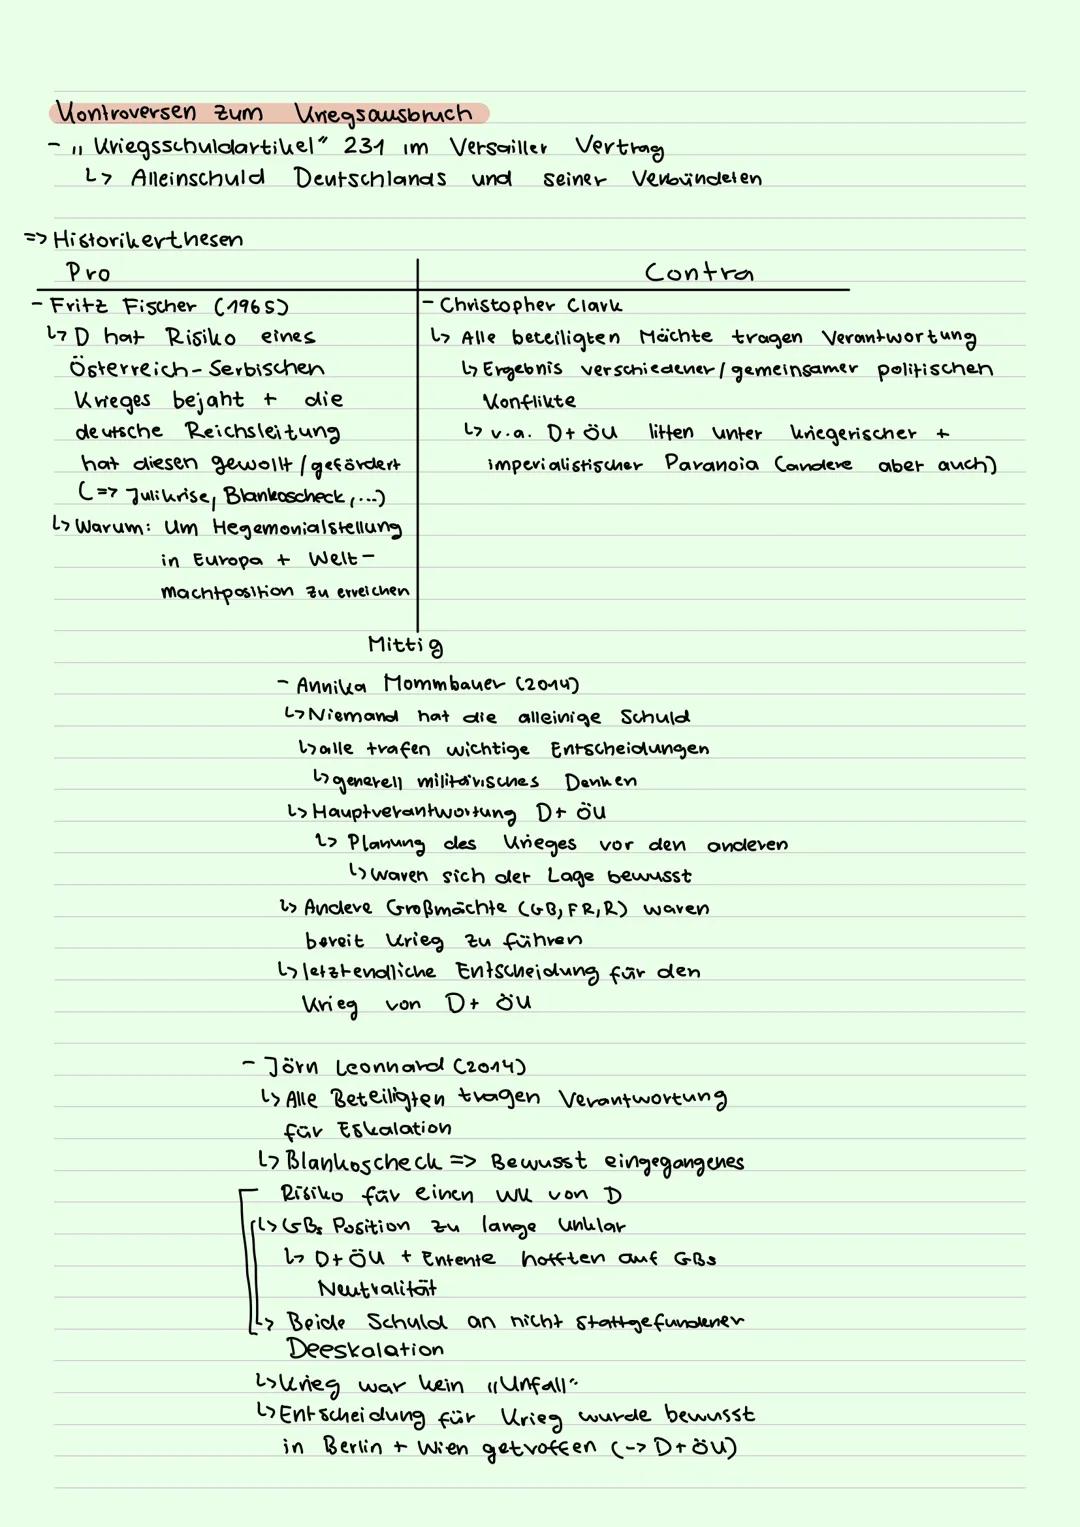 Kontroversen zum Kriegsausbruch
- „Kriegsschuldartikel" 231 im Versailler Vertrag
↳ Alleinschuld Deutschlands und seiner Verbündeten
=> Historikerthesen
Pro
- Fritz Fischer (1965)
↳ D hat Risiko eines
Österreich-Serbischen
Krieges bejaht + die
deutsche Reichsleitung
hat diesen gewollt/gefördert
(=> Julikrise, Blankoscheck,...)
↳ Warum: Um Hegemonialstellung
in Europa + Welt-
machtposition zu erreichen
Contra
- Christopher Clark
↳ Alle beteiligten Mächte tragen Verantwortung
↳ Ergebnis verschiedener/gemeinsamer politischen
Konflikte
↳ v.a. D+ÖU litten unter kriegerischer +
imperialistischer Paranoia (andere aber auch)
Mittig
- Annika Mommbauer (2014)
↳ Niemand hat die alleinige Schuld
↳ alle trafen wichtige Entscheidungen
↳ generell militärisches Denken
↳ Hauptverantwortung D+ ÖU
↳ Planung des Krieges vor den anderen
↳ waren sich der Lage bewusst
↳ Andere Großmächte (GB, FR, R) waren
bereit Krieg zu führen
↳ letztendliche Entscheidung für den
Krieg von D+ ÖU
- Jörn Leonnard (2014)
↳ Alle Beteiligten tragen Verantwortung
für Eskalation
↳ Blankoscheck => Bewusst eingegangenes
Risiko für einen WK von D
↳ GBs Position zu lange unklar
↳ D+ÖU + Entente hofften auf GBs
Neutralität
↳ Beide Schuld an nicht stattgefundener
Deeskalation
↳ Krieg war kein „Unfall"
↳ Entscheidung für Krieg wurde bewusst
in Berlin + Wien getroffen (-> D+ÖU)